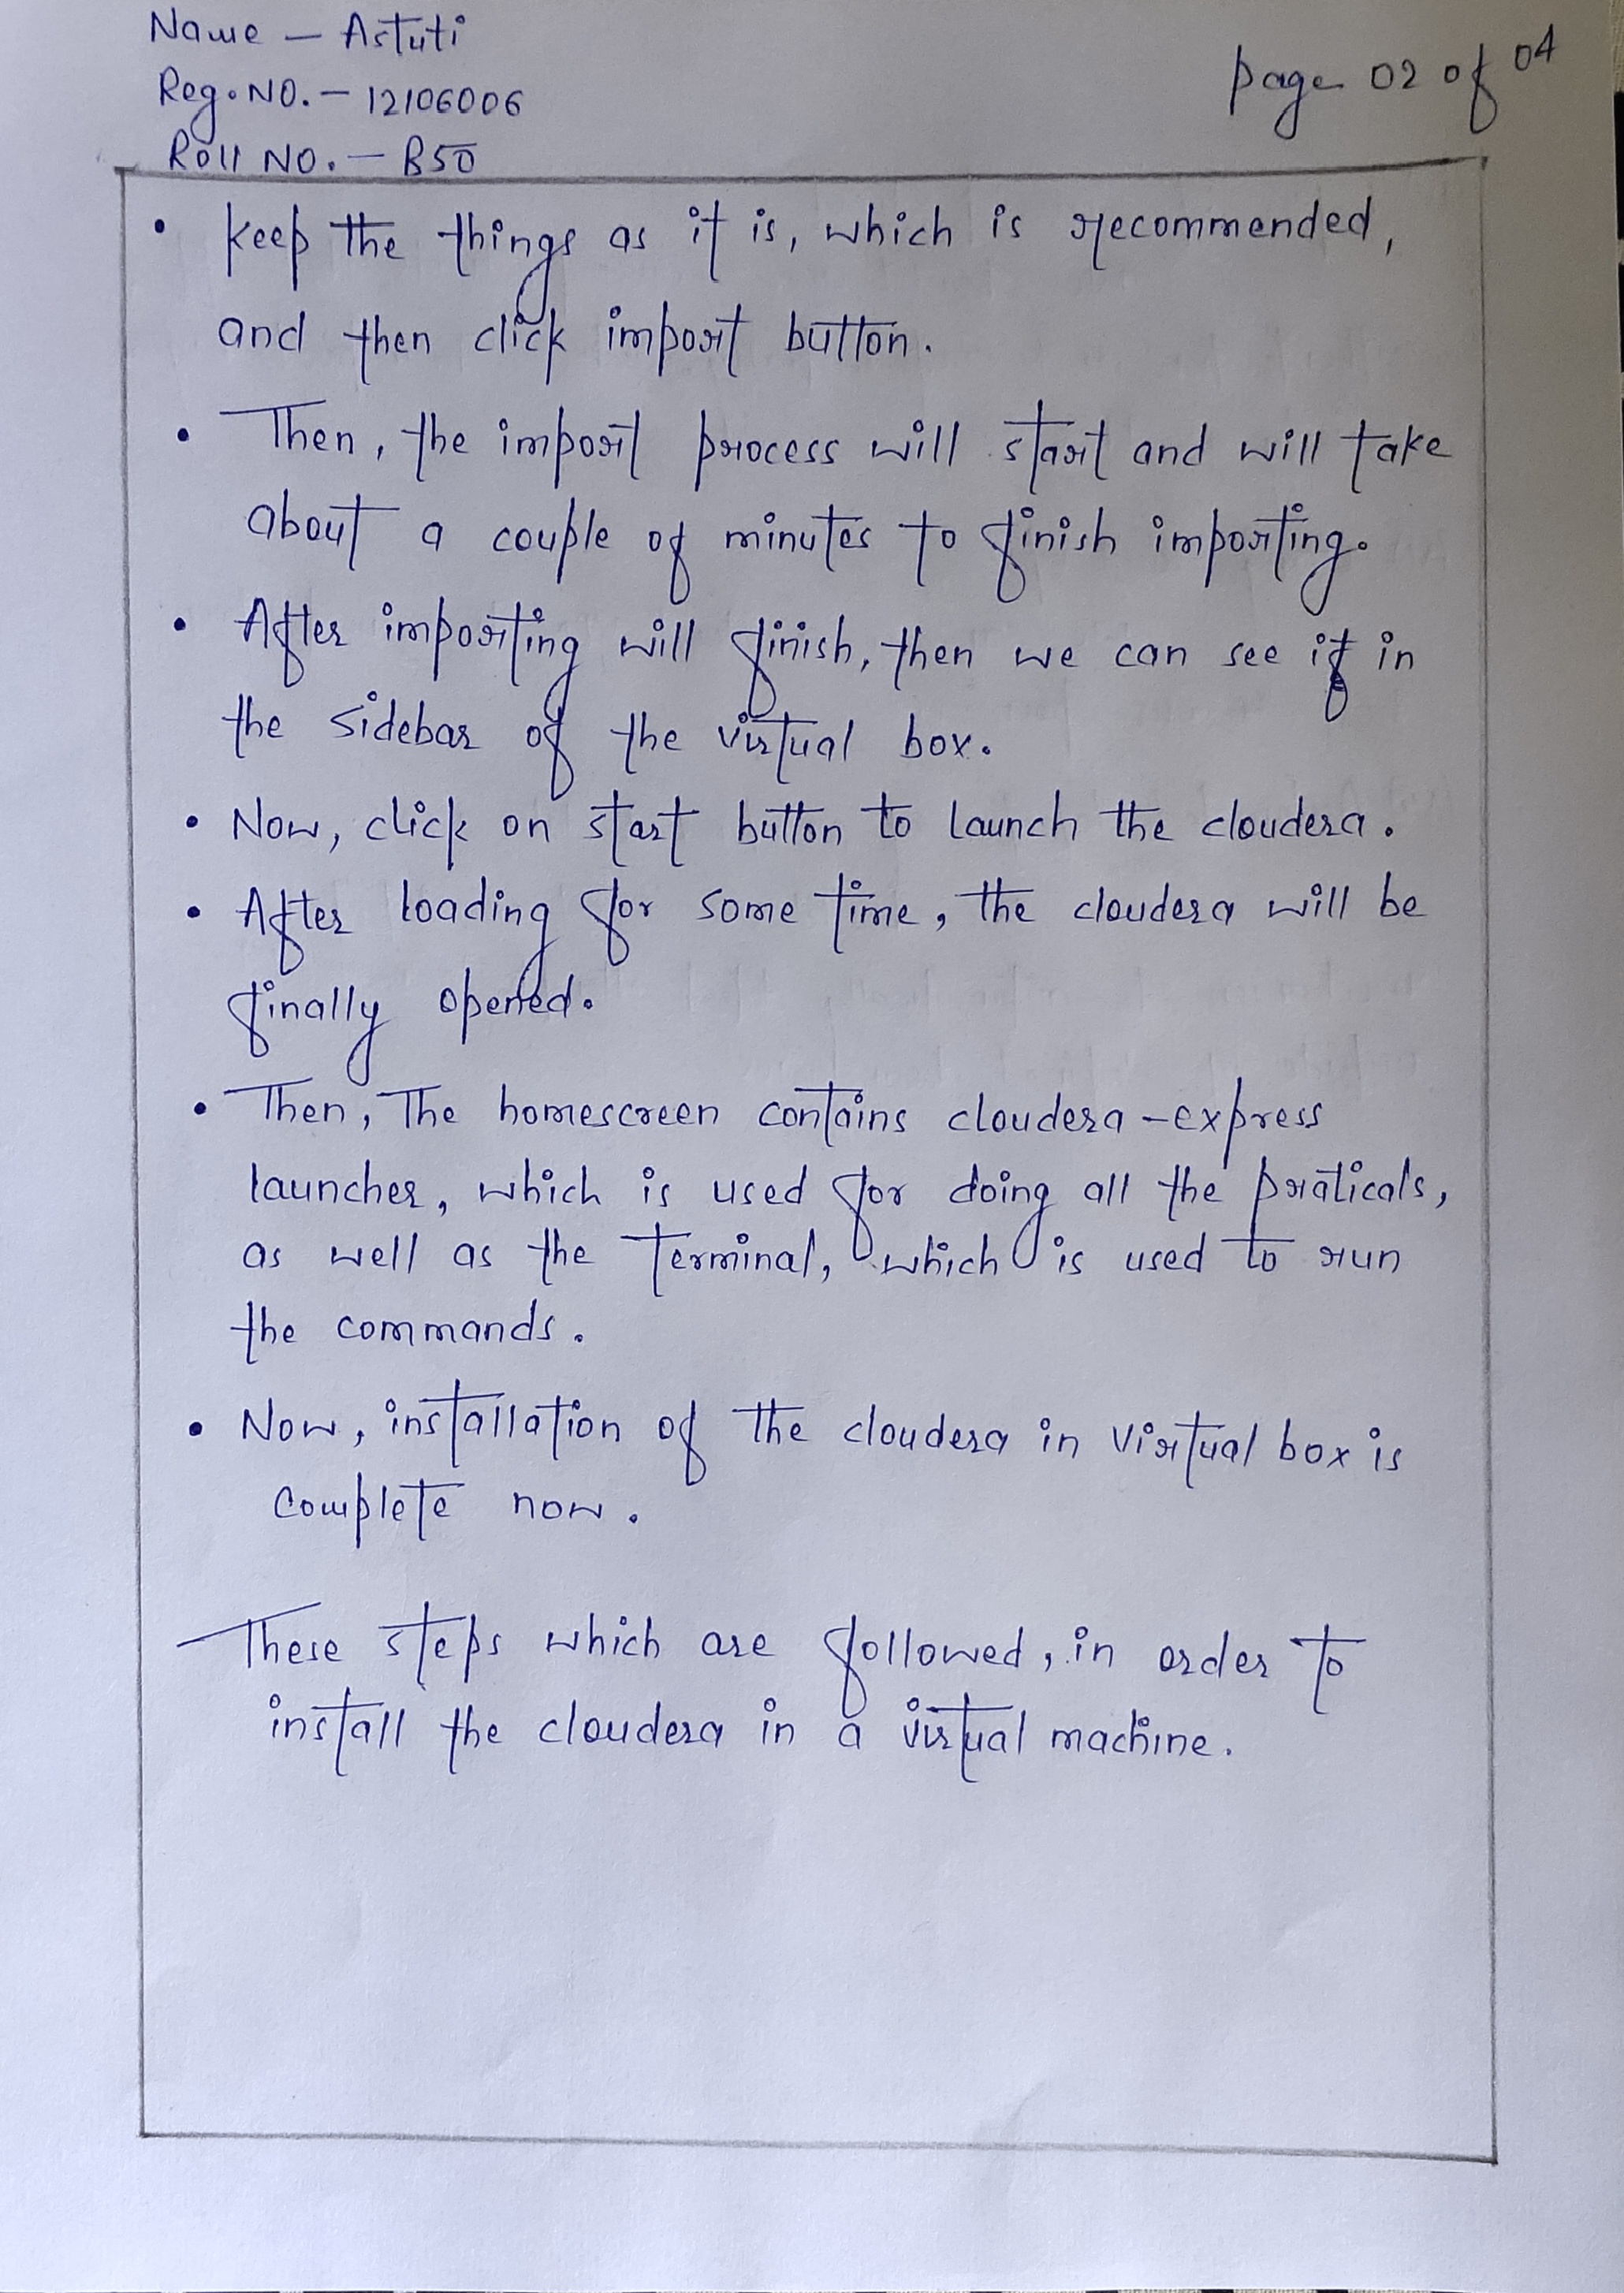 Name – Astuti
Page 02 of 04
Reg. NO. – 12106006
Roll NO. – B50
• Keep the things as it is, which is recommended,
and then click import button.
• Then, the import process will start and will take
about a couple of minutes to finish importing.
• After importing will finish, then we can see it in
the sidebar of the virtual box.
• Now, click on start button to launch the cloudera.
• After loading for some time, the cloudera will be
finally opened.
• Then, The homescreen contains cloudera-express
launcher, which is used for doing all the praticals,
as well as the Terminal, which is used to run
the commands.
• Now, installation of the cloudera in Virtual box is
complete now.
These steps which are followed, in order to
install the cloudera in a virtual machine.